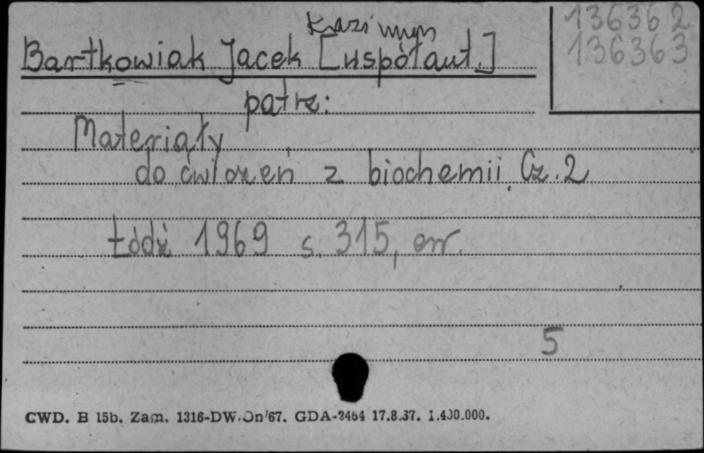 Kazimierz
Bartkowiak Jacek [współaut.]
136362
136363
patrz:
Materiały
do ćwiczeń z biochemii. Cz. 2
Łódź 1969 s. 315, err.
5
CWD. B 15b. Zam. 1316-DW.On/67. GDA-2464 17.8.67. 1.400.000.